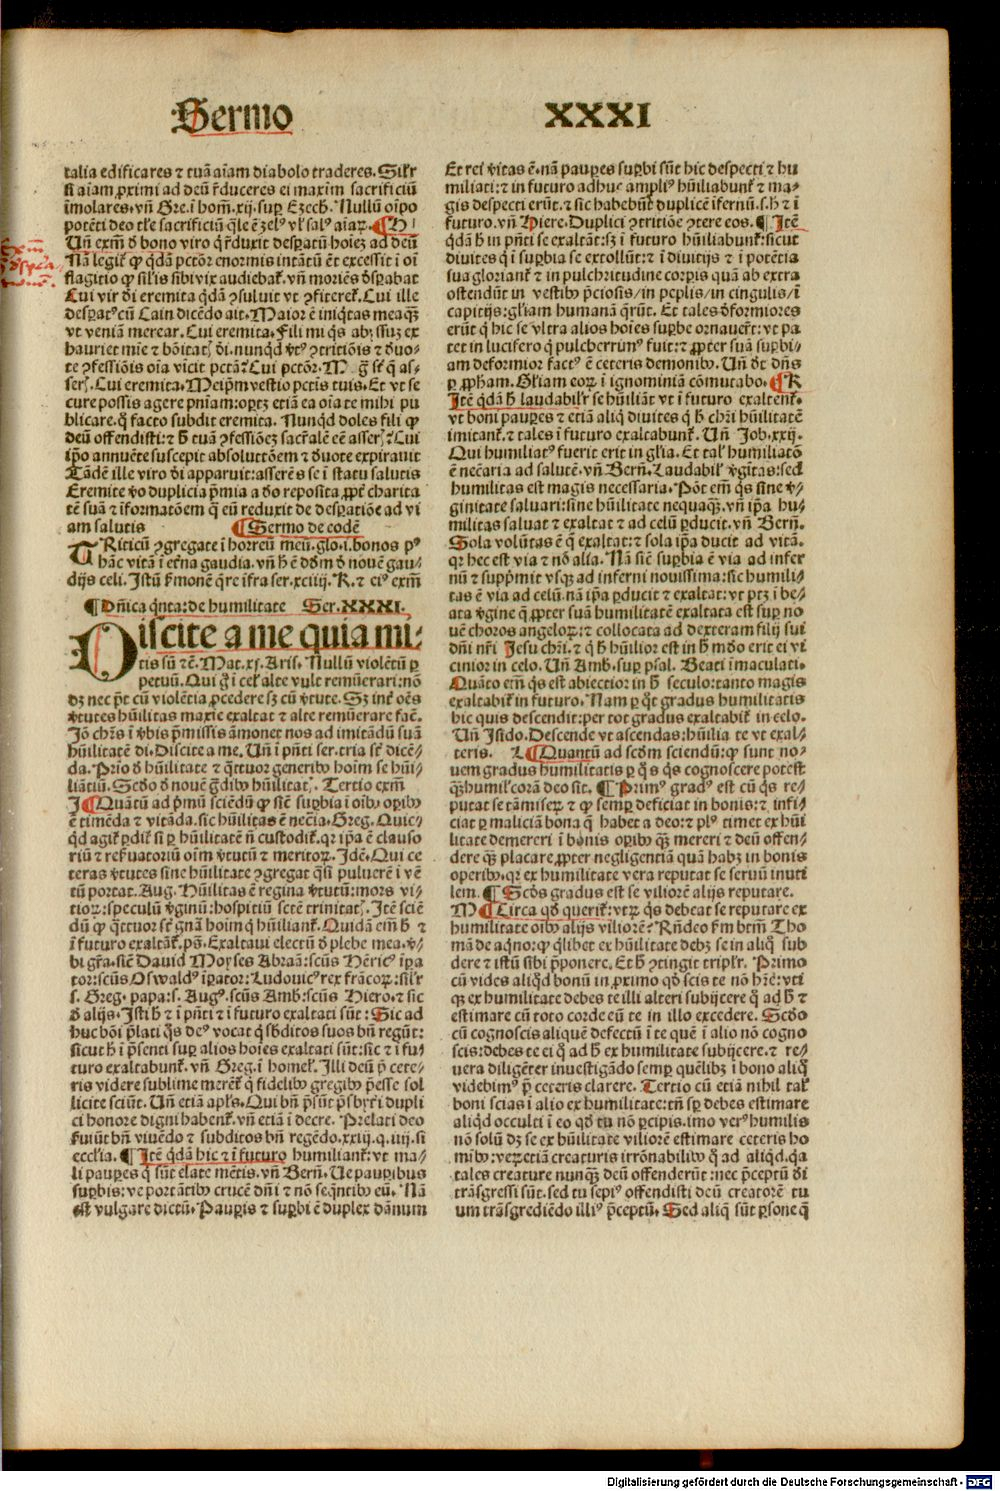 Sermo XXXI
talia edificares ⁊ tuā aīam diabolo traderes. Silr
si aīam ꝓximi ad deū r̄duceres ei maxim sacrificiū
īmolares. vn̄ Gre. ī hom̄. xij. suꝑ Ezech. Nullū oīpo
potēti deo tl'e sacrificiū q̄le ē zelꝰ
Un̄ exm̄ d̄ bono viro q̄ r̄duxit desꝑatū hoīez ad deū
Nā legit̄ ꝙ q̄dā pctōr enormis intātū ēt excessit ī oī
flagitio ꝙ sil'is sibi vix audiebat̄. vn̄ moriēs d̄sꝑabat
Cui vir dī eremita q̄dā ꝯsuluit vt ꝯfiteret̄. Cui ille
desꝑatꝰ cū Cain dicēdo ait. Maior ē iniq̄tas mea qꝫ
vt veniā merear. Cui eremita. Fili mi
hauriet mīe ⁊ bōitatꝭ dī. nunqd̄ v̄tꝰ ꝯtritiōis ⁊ d̄uo-
te ꝯfessiōis oīa vīcit pctā? Cui pctōr. M
serꝭ. Cui eremita. Meip̄m vestio pctis tuis. Et vt se
cure possis agere pniāꝫ: oportꝫ etiā ea oīa te mihi pu
blicare. q̄ facto subdit eremita. Nunqd̄ doles fili ꝙ
deū offendisti: ⁊ h̄ tuā ꝯfessiōez sacr̄alē eē asserꝭ? Cui
ip̄o annuēte suscepit absolutōem ⁊ d̄uote expirauit
Tādē ille viro dī apparuit: asserēs se ī statu salutis
Eremite v̄o duplicia p̄mia a d̄o reposita ꝓpt̄ charita
tē suā ⁊ īformatōem q̄ eū reduxit de desꝑatiōe ad vi
am salutis ¶ Sermo de eodē
TRiticū ꝯgregate ī horreū meū. glo. i. bonos pꝰ
hāc vitā ī et̄na gaudia. vn̄ h̄ ē d̄dm̄ d̄ nouē gau-
dijs celi. Istū s̄monē q̄re īfra ser. xciiij. R. ⁊ eiꝰ exm̄
¶ Dn̄ica q̄nta: de humilitate Ser. XXXI.
Discite a me quia mi-
tis sū ⁊ē. Mat. xj. Aris. Nullū violētū ꝑ
petuū. Qui ḡ ī cel' alte vult remūerari: nō
dꝫ nec p̄t cū violētia ꝓcedere sꝫ cū v̄tute. Sꝫ int̄ oēs
v̄tutes hūilitas maxīe exaltat ⁊ alte remūerare facē.
Iō chrs̄ ī v̄bis p̄missis āmonet nos ad imitādū suā
hūilitatē dī. Discite a me. Un̄ ī pn̄ti ser. tria sr̄t dicē-
da. Prīo d̄ hūilitate ⁊ q̄ttuor generibꝰ hoīm se hūi-
liātiū. Scd̄o d̄ nouē g̈dibꝰ hūilitatꝭ. Tertio exm̄
I ¶ Quātū ad p̄mū sciēdū ꝙ sic̄ suꝑbia ī oībꝰ oꝑibꝰ
ē timēda ⁊ vitāda. sic hūilitas ē nec̄ia. Greg. Quic-
qd̄ agit̄ ꝑdit̄ si ꝑ hūilitatē n̄ custodit̄. qr ip̄a ē clauso
riū ⁊ reseruatoriū oīm v̄tutū ⁊ meritoꝝ. Idē. Qui ce
teras v̄tutes sine hūilitate ꝯgregat q̄si puluerē ī vē
tū portat. Aug. Hūilitas ē regina v̄tutū: mors vi-
tioꝝ: speculū v̄ginū: hospitiū sctē trinitatꝭ. Itē sciē
dū ꝙ q̄ttuor sr̄t gn̄a hoīm q̄ hūiliant̄. Quidā em̄ h̄ ⁊
ī futuro exaltāt̄. ps̄. Exaltaui electū d̄ plebe mea. v̄-
bi gr̄a. sic̄ Dauid Moyses Abraā: scūs Hēricꝰ īpa
tor: scūs Oswaldꝰ īꝑator: Ludouicꝰ rex frācoꝝ: sil'r
s. Greg. papa: s. Augꝰ. scūs Amb: scūs Hiero. ⁊ sic
d̄ alijs. Isti h̄ ⁊ ī pn̄ti ⁊ ī futuro exaltati sūt: Sic ad
huc bōi p̄lati q̄s deꝰ vocat q̄ sb̄ditos suos bn̄ regūt:
sicut h̄ ī p̄senti suꝑ alios hoīes exaltati sūt: sic ⁊ ī fu-
turo exaltabunt̄. vn̄ Greg. ī homel'. Illi deū p̄ cete-
ris videre sublime merēt̄ q̄ fidelibꝰ gregibꝰ p̄esse sol
licite sciūt. Un̄ etiā apl's. Qui bn̄ p̄sūt p̄sbyt̄ri dupli
ci honore digni habent̄. vn̄ etiā ī decre. Prelati deo
seruiūt bn̄ viuēdo ⁊ subditos bn̄ regēdo. xxiij. q. iiij. si
eccl'ia. ¶ Itē q̄dā hic ⁊ ī futuro humiliant̄: vt ma-
li pauꝑes q̄ sūt elate mētis. vn̄ Bern̄. Ue pauꝑibus
suꝑbis: ve portātibꝰ crucē dn̄i ⁊ nō seq̄ntibꝰ eū. Nā
est vulgare dictū. Pauꝑis ⁊ suꝑbi ē duplex dānum
Et rei v̄itas ē. nā pauꝑes suꝑbi sūt hic despecti ⁊ hu
miliati: ⁊ in futuro adhuc ampliꝰ hūiliabunt̄ ⁊ ma-
gis despecti erūt. ⁊ sic habebūt duplicē īfernū. s. h̄ ⁊ ī
futuro. vn̄ Hiere. Duplici ꝯtritiōe ꝯtere eos. ¶ Itē
q̄dā h̄ in pn̄ti se exaltāt: sꝫ ī futuro hūiliabunt̄: sicut
diuites q̄ ī suꝑbia se extollūt: ⁊ ī diuitijs ⁊ ī potētia
sua gloriant̄ ⁊ in pulchritudine corꝑis quā ab extra
ostendūt in vestibꝰ p̄ciosis/ in peplis/ in cingulis/ ī
capitijs: gl'iam humanā q̄rūt. Et tales d̄formiores
erūt q̄ hic se vltra alios hoīes suꝑbe ornauer̄t: vt pa
tet in lucifero q̄ pulcherrimꝰ fuit: ⁊ ꝓpter suā suꝑbi-
am deformior factꝰ ē ceteris demonibꝰ. Un̄ dt̄ dn̄s
ꝑ ꝓpham. Gl'iam eoꝝ ī ignominiā cōmutabo. ¶ K
Itē q̄dā h̄ laudabil'r se hūiliāt vt ī futuro exaltent̄.
vt boni pauꝑes ⁊ etiā aliq̄ diuites q̄ h̄ chr̄i hūilitatē
imitant̄. ⁊ tales ī futuro exaltabunt̄. Un̄ Job. xxij.
Qui humiliatꝰ fuerit erit in gl'ia. Et tal' humiliatō
ē nec̄aria ad salutē. vn̄ Bern̄. Laudabil' v̄gītas: sed
humilitas est magis necessaria. Pōt em̄ q̄s sine v̄-
ginitate saluari: sine hūilitate nequaqꝫ. vn̄ ip̄a hu-
militas saluat ⁊ exaltat ⁊ ad celū ꝑducit. vn̄ Bern̄.
Sola volūtas ē q̄ exaltat: ⁊ sola ip̄a ducit ad vitā.
qr hec est via ⁊ nō alia. Nā sic̄ suꝑbia ē via ad infer
nū ⁊ supp̄mit vsqꝫ ad inferni nouissima: sic humili-
tas ē via ad celū. nā ip̄a ꝑducit ⁊ exaltat: vt ptꝫ ī be-
ata v̄gine q̄ ꝓpter suā humilitatē exaltata est suꝑ no
uē choros angeloꝝ: ⁊ collocata ad dexteram filij sui
dn̄i nr̄i Jesu chr̄i. ⁊ q̄ h̄ hūilior est in h̄ mūdo erit ei vi
cinior in celo. Un̄ Amb. suꝑ psal. Beati īmaculati.
Quāto em̄ q̄s est abiectior in h̄ seculo: tanto magis
exaltabit̄ in futuro. Nam ꝑ q̄t gradus humilitatis
hic quis descendit: per tot gradus exaltabit̄ in celo.
Un̄ Isido. Descende vt ascendas: hūilia te vt exal-
teris. L ¶ Quantū ad scd̄m sciendū: ꝙ sunt no-
uem gradus humilitatis ꝑ q̄s q̄s cognoscere potest
qꝫ humil' corā deo sit. ¶ Primꝰ gradꝰ est cū q̄s re-
putat se tā miseꝝ ⁊ ꝙ semꝑ deficiat in bonis: ⁊ infi-
ciat ꝑ maliciā bona q̄ habet a deo: ⁊ plꝰ timet ex hūi
litate demereri ī bonis oꝑibꝰ qꝫ mereri ⁊ deū offen-
dere qꝫ placare. ꝓpter negligentiam quā habꝫ in bonis
operibꝰ. qr ex humilitate vera reputat se seruū inuti
lem. ¶ Scd̄s gradus est se viliorē alijs reputare.
M ¶ Circa qd̄ querit̄: vtꝝ q̄s debeat se reputare ex
humilitate oībꝰ alijs viliorē? Rn̄deo s̄m btm̄ Tho
mā de aq̄no: ꝙ q̄libet ex hūilitate debꝫ se in aliq̄ sub
dere ⁊ istū sibi p̄ponere. Et h̄ ꝯtingit tripl'r. Primo
cū vides aliqd̄ bonū in ꝓximo qd̄ scis te nō hr̄e: vti
qꝫ ex humilitate debes te illi alteri subijcere q̄ ad h̄ ⁊
estimare cū toto corde eū te in illo excedere. Scd̄o
cū cognoscis aliquē defectū ī te quē ī alio nō cogno
scis: debes te ei q̄ ad h̄ ex humilitate subijcere. ⁊ re-
uera diligēter inuestigādo semꝑ quēlibꝫ ī bono aliq̄
videbimꝰ p̄ ceteris clarere. Tertio cū etiā nihil tal'
boni scias ī alio ex humilitate: tn̄ sꝑ debes estimare
aliqd̄ occulti ī eo qd̄ tu nō ꝑcipis. imo verꝰ humilis
nō solū dꝫ se ex hūilitate viliorē estimare ceteris ho
mībꝰ: veꝝ etiā creaturis irrōnabilibꝰ q̄ ad aliqd. q̄a
tales creature nunqꝫ deū offenderūt: nec p̄ceptū dī
trāsgressi sūt. sed tu sepiꝰ offendisti deū creatorē tu
um trāsgrediēdo illiꝰ p̄ceptū. Sed aliq̄ sūt ꝑsone q̄
Digitalisierung gefördert durch die Deutsche Forschungsgemeinschaft - DFG